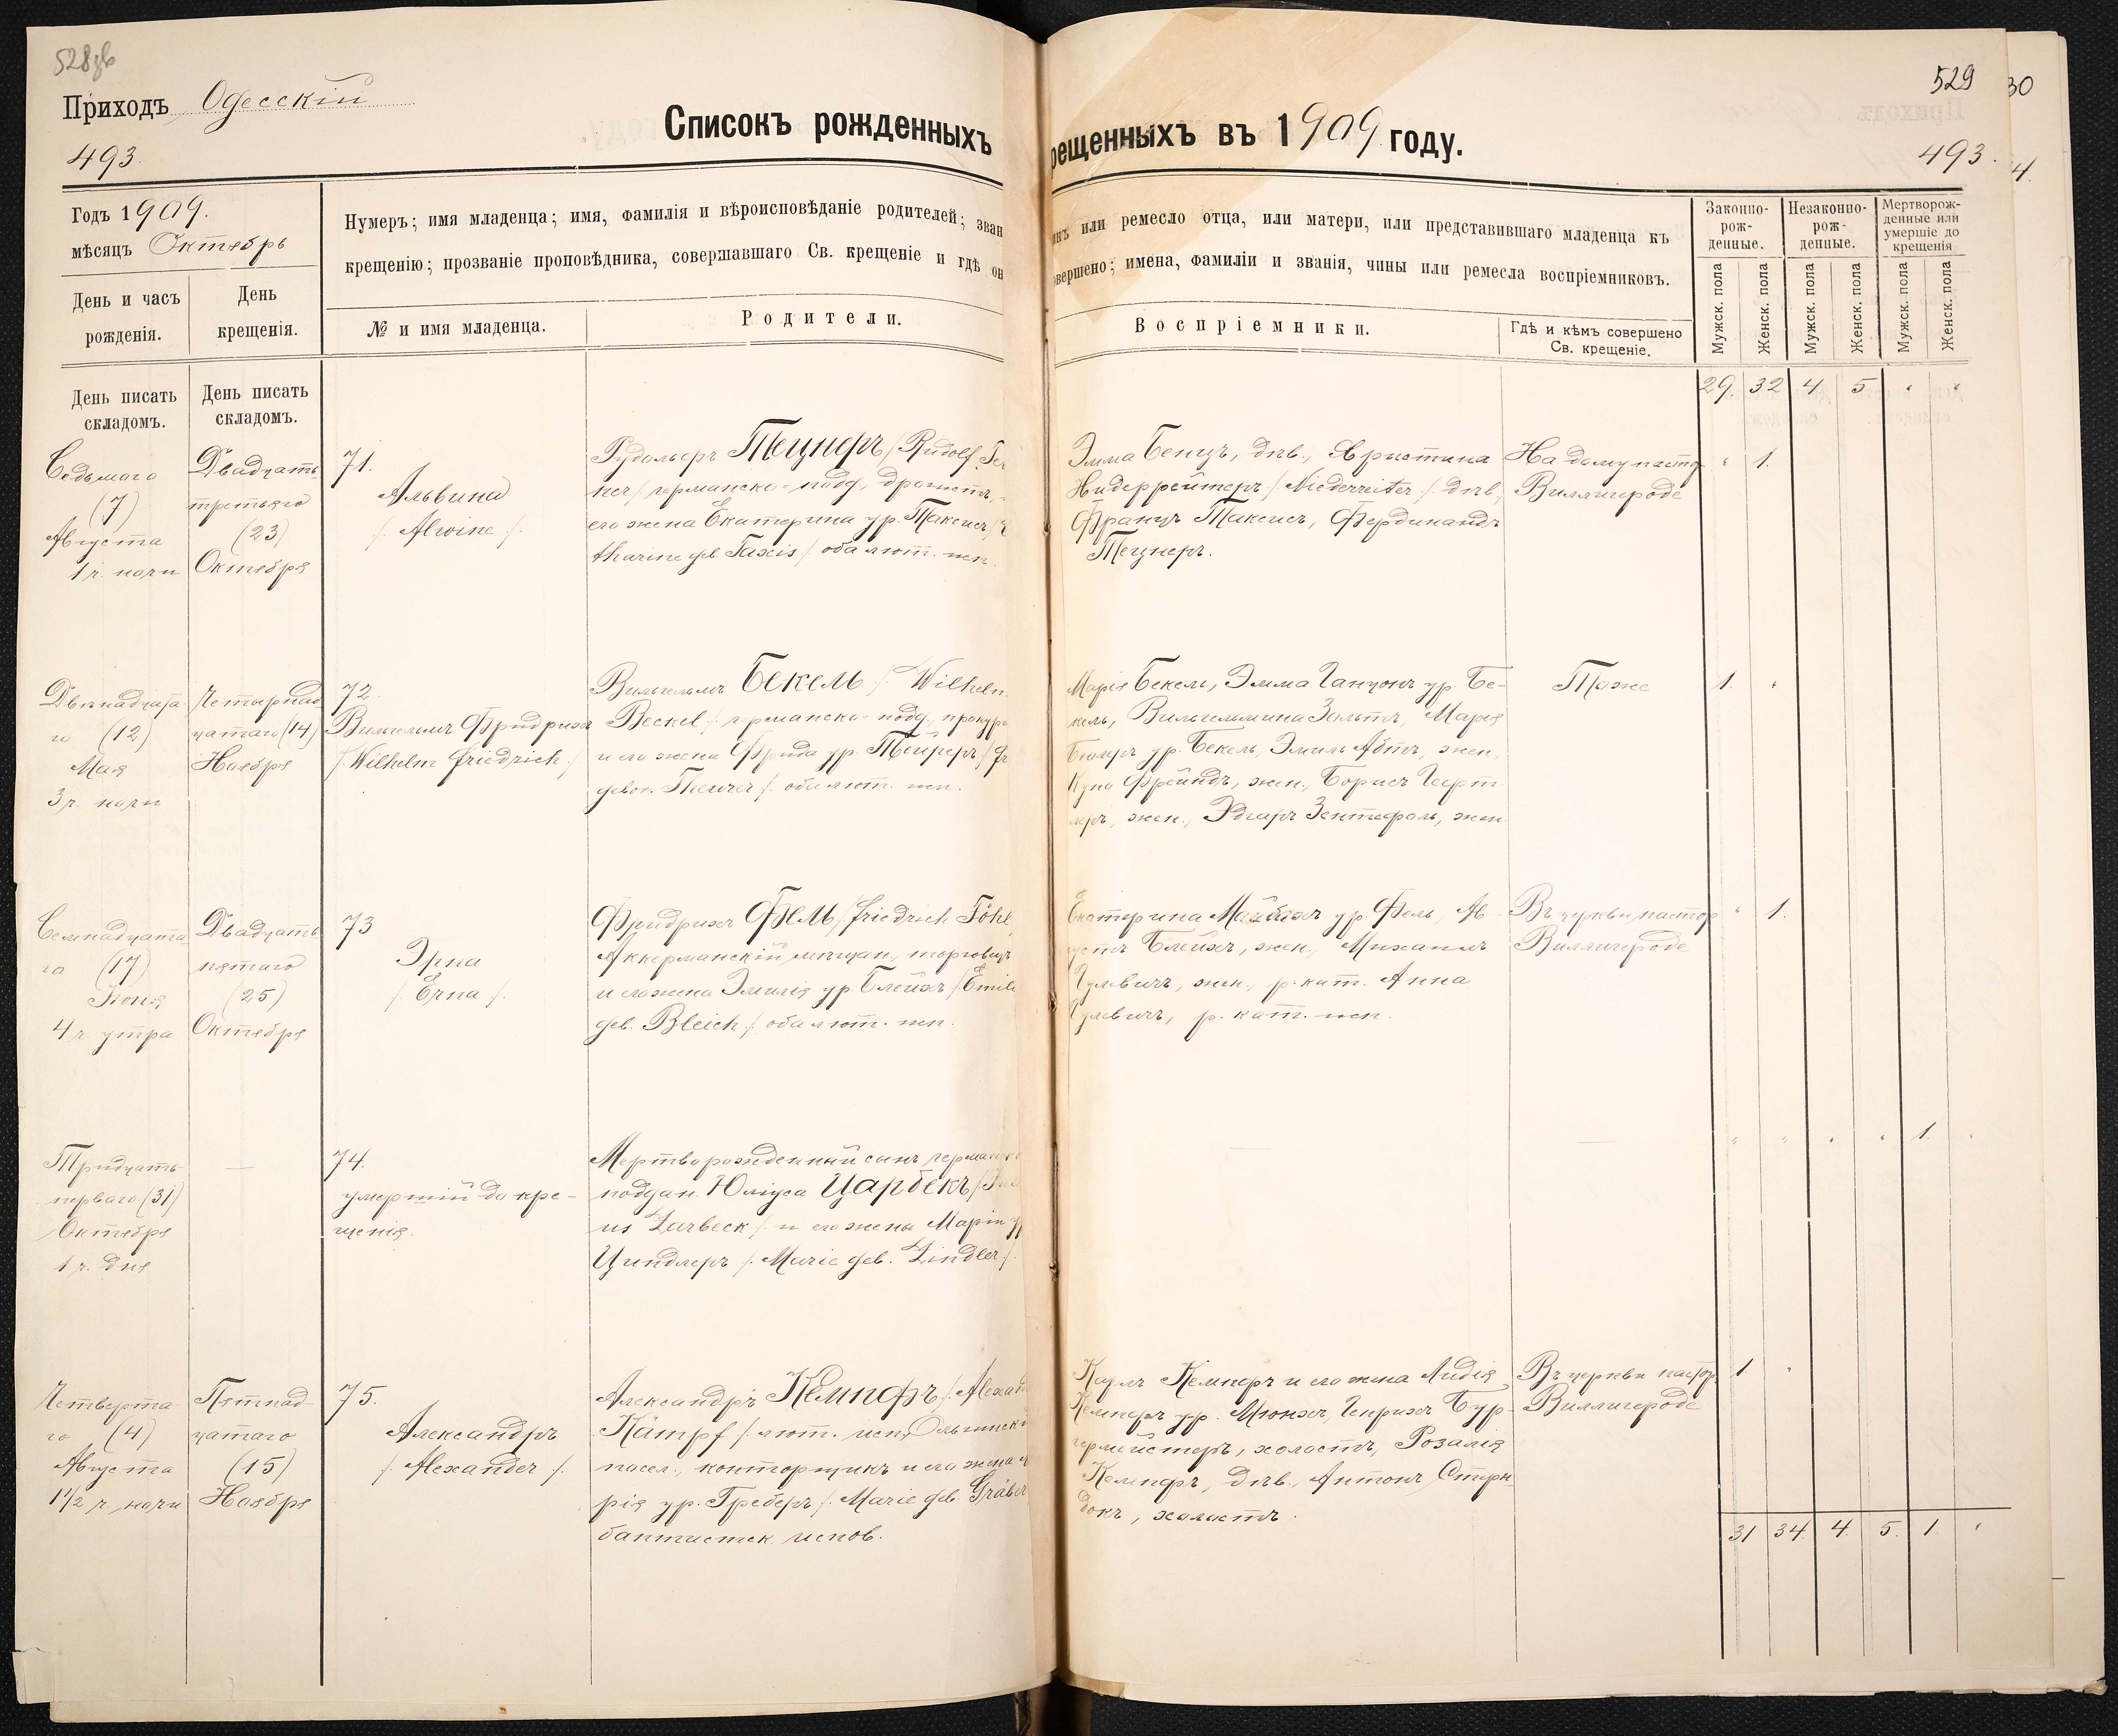 528об
Приходъ Одесскій
493.
Списокъ рожденныхъ
Годъ 1909.
мѣсяцъ Октябрь
Нумеръ; имя младенца; имя, фамилія и вѣроисповѣданіе родителей; зван
крещенію; прозваніе проповѣдника, совершавшаго Св. крещеніе и гдѣ он
День и часъ
рожденія.
День
крещенія.
№ и имя младенца.
Родители.
День писать
складомъ.
День писать
складомъ.
Седьмого
(7)
Августа
1 ч. ночи
Двадцать
третьяго
(23)
Октября
71.
Альвина
/. Alwine /.
Рудольфъ Тецнеръ /Rudolf Te
ner/ германско-подд,
его жена Екатерина ур. Таксисъ /
tharine geb. Taxis/ оба лют. исп.
Двѣнадцата
го (12)
Мая
3 ч. ночи
Четырнад
цатаго (14)
Ноября
72.
Вильгельмъ Фридрихъ
/Wilhelm Friedrich/.
Вильгельмъ Бекель /. Wilhelm
Beckel /. германско-подд,
и его жена Фрида ур. Тейреръ /. Fr
gebor. Theurer /. оба лют. исп.
Семнадцата
го (17)
Іюня
4 ч. утра
Двадцать
пятаго
(25)
Октября
73
Эрна
/. Erna /.
Фридрихъ Фель /Friedrich Föhl,
Аккерманскій мѣщан., торговецъ
и его жена Эмилія ур. Блейхъ /Emili
geb. Bleich /. оба лют. исп.
Тридцать
перваго (31)
Октября
1 ч. дня
—
74.
умершій до кре-
щенія.
Мертворожденный сынъ германско
поддан. Юліуса Царбекъ /Juli
us Zarbeck /. и его жены Маріи ур
Циндлеръ /. Marie geb. Zindler /.
Четверта
го (4)
Августа
1 1/2 ч. ночи
Пятнад-
цатаго
(15)
Ноября
75.
Александръ
/. Alexander /.
Александръ Кемпфъ /. Alexand
Kämpf /. лют. исп.,
посел., конторщикъ и его жена М
рія ур. Греберъ /. Marie geb. Gräber
баптистск. испов.
529
30
рещенныхъ въ 1909 году.
493.
4.
инъ или ремесло отца, или матери, или представившаго младенца къ
овершено; имена, фамиліи и званія, чины или ремесла воспріемниковъ.
Воспріемники.
Гдѣ и кѣмъ совершено
Св. крещеніе.
Законно-
рож-
денные.
Незаконно-
рож-
денные.
Мертворож-
денные или
умершіе до
крещенія
Мужск. пола
Женск. пола
Мужск. пола
Женск. пола
Мужск. пола
Женск. пола
29. 32 4 5 " "
Эмма Бенцъ, дѣв., Христина
Нидеррейтеръ /. Niederreiter /. дѣв.,
Францъ Таксисъ, Фердинандъ
Тецнеръ.
На дому пастор
Виллигероде
" 1.
Марія Бекель, Эмма Ганцонъ ур. Бе-
кель, Вильгельмина Зольтъ, Марія
ур. Бекель, Эмиль Абтъ, жен.
Куно Фрейндъ, жен., Борисъ
жен., Эдгаръ жен
Тоже
1. "
Екатерина Майбахъ ур. Фель, Ав-
густъ Блейхъ, жен., Михаилъ
Гулевичъ, жен., р. кат. Анна
Гулевичъ, р. кат. исп.
Въ церкви пастор
Виллигероде
" 1.
—
—
" " " " 1. "
Карлъ Кемпфъ и его жена Лидія
Кемпфъ ур. Мюнхъ, Генрихъ Бур-
гермейстеръ, холостъ, Розалія
Кемпфъ, дѣв., Антонъ Стерн
докъ, холостъ.
Въ церкви пастор.
Виллигероде
1 "
31 34. 4. 5. 1. "